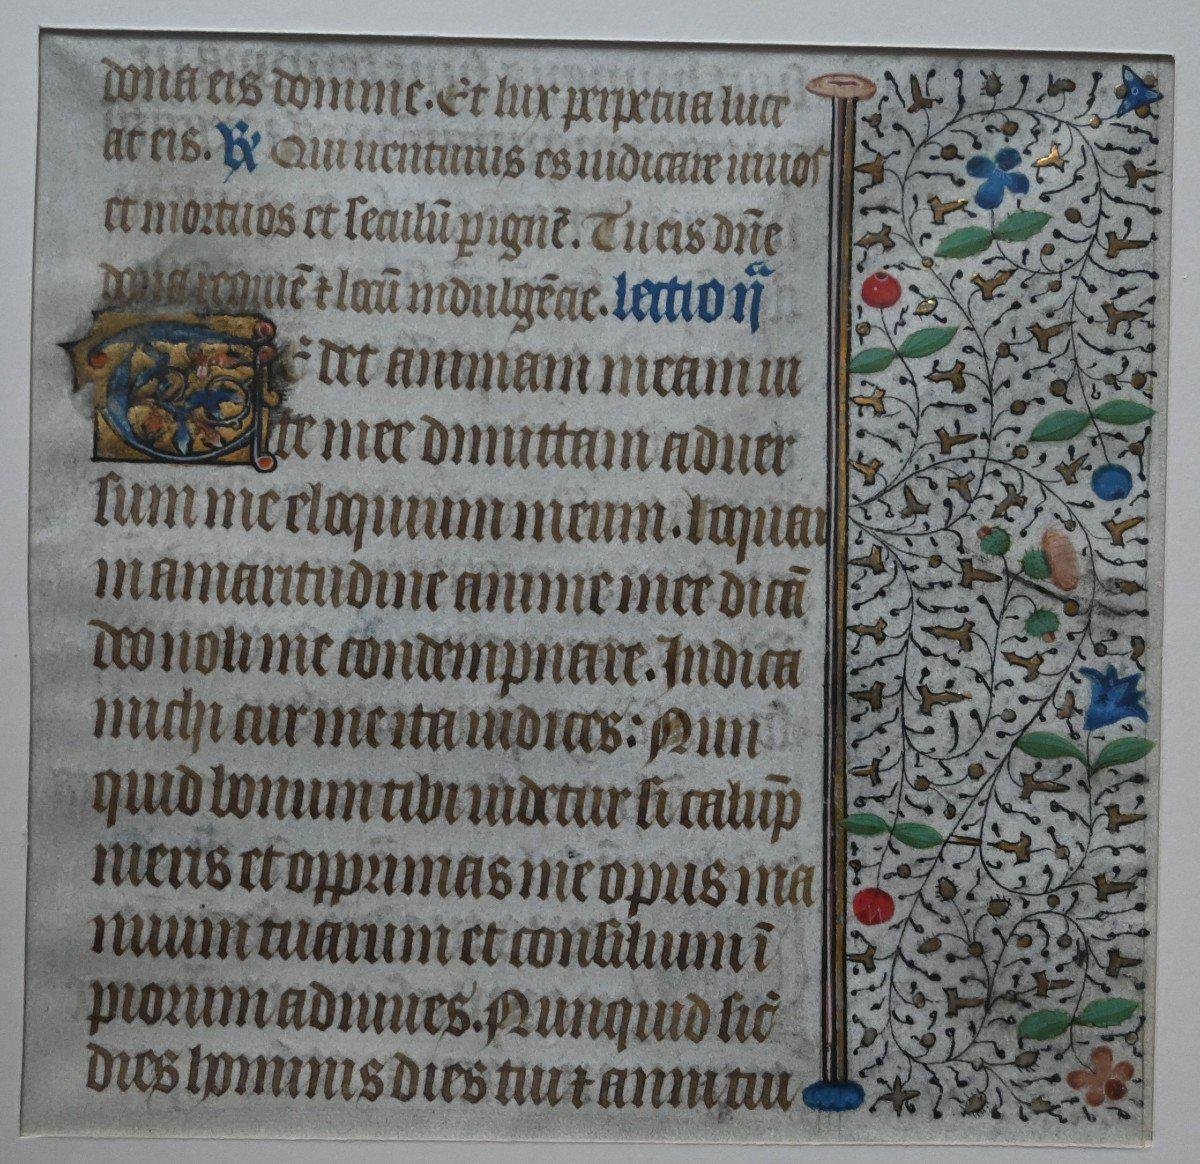 dona eis domine. Et lux perpetua luce
at eis. R Qui uenturus es iudicare uiuos
et mortuos et seculū p ignē. Tu eis dn̄e
dona requiē ⁊ locū indulgēcie. lectio ij^a
T det animam meam ui
te mee dimittam aduer
sum me eloquium meum. loquar
in amaritudine anime mee dicā
deo noli me condempnare. Indica
michi cur me ita iudices: Nun
quid bonum tibi uidetur si calūp
nieris et opprimas me opus ma
nuum tuarum et consilium ī
piorum adiuues. Nunquid sic̄
dies hominis dies tui ⁊ anni tui